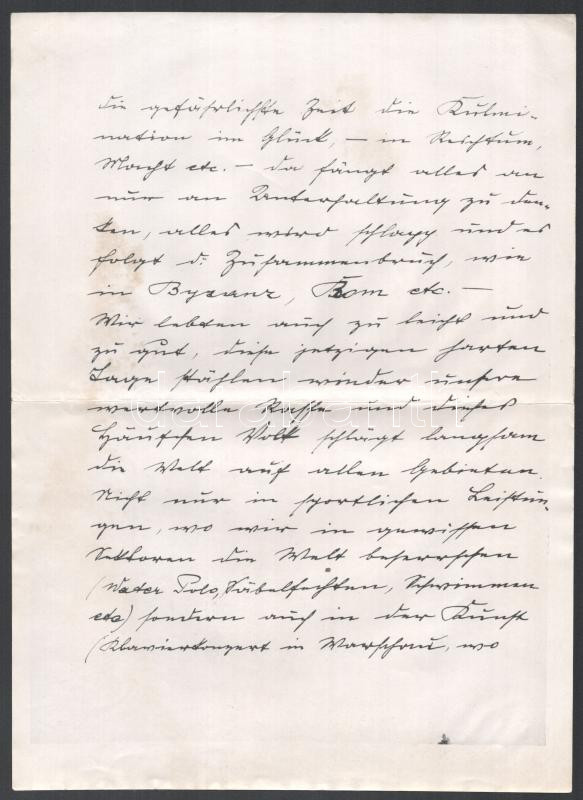 die gefährlichste Zeit die Kulmi-
nation im Glück, – in Reichtum,
Macht etc. – da fängt alles an
nur an Unterhaltung zu den-
ken, alles wird schlapp und es
folgt d. Zusammenbruch, wie
in Byzanz, Rom etc. –
Wir lebten auch zu leicht und
zu gut, diese jetzigen harten
Tage stählen wieder unsere
wertvolle Rasse und dieses
Häufchen Volk schlagt langsam
die Welt auf allen Gebieten.
Nicht nur in sportlichen Leistun-
gen, wo wir in gewissen
Sektoren die Welt beherrschen
(Water Polo, Säbelfechten, Schwimmen
etc) sondern auch in der Kunst
(Klavierkonzert in Warschau, wo
darabanth